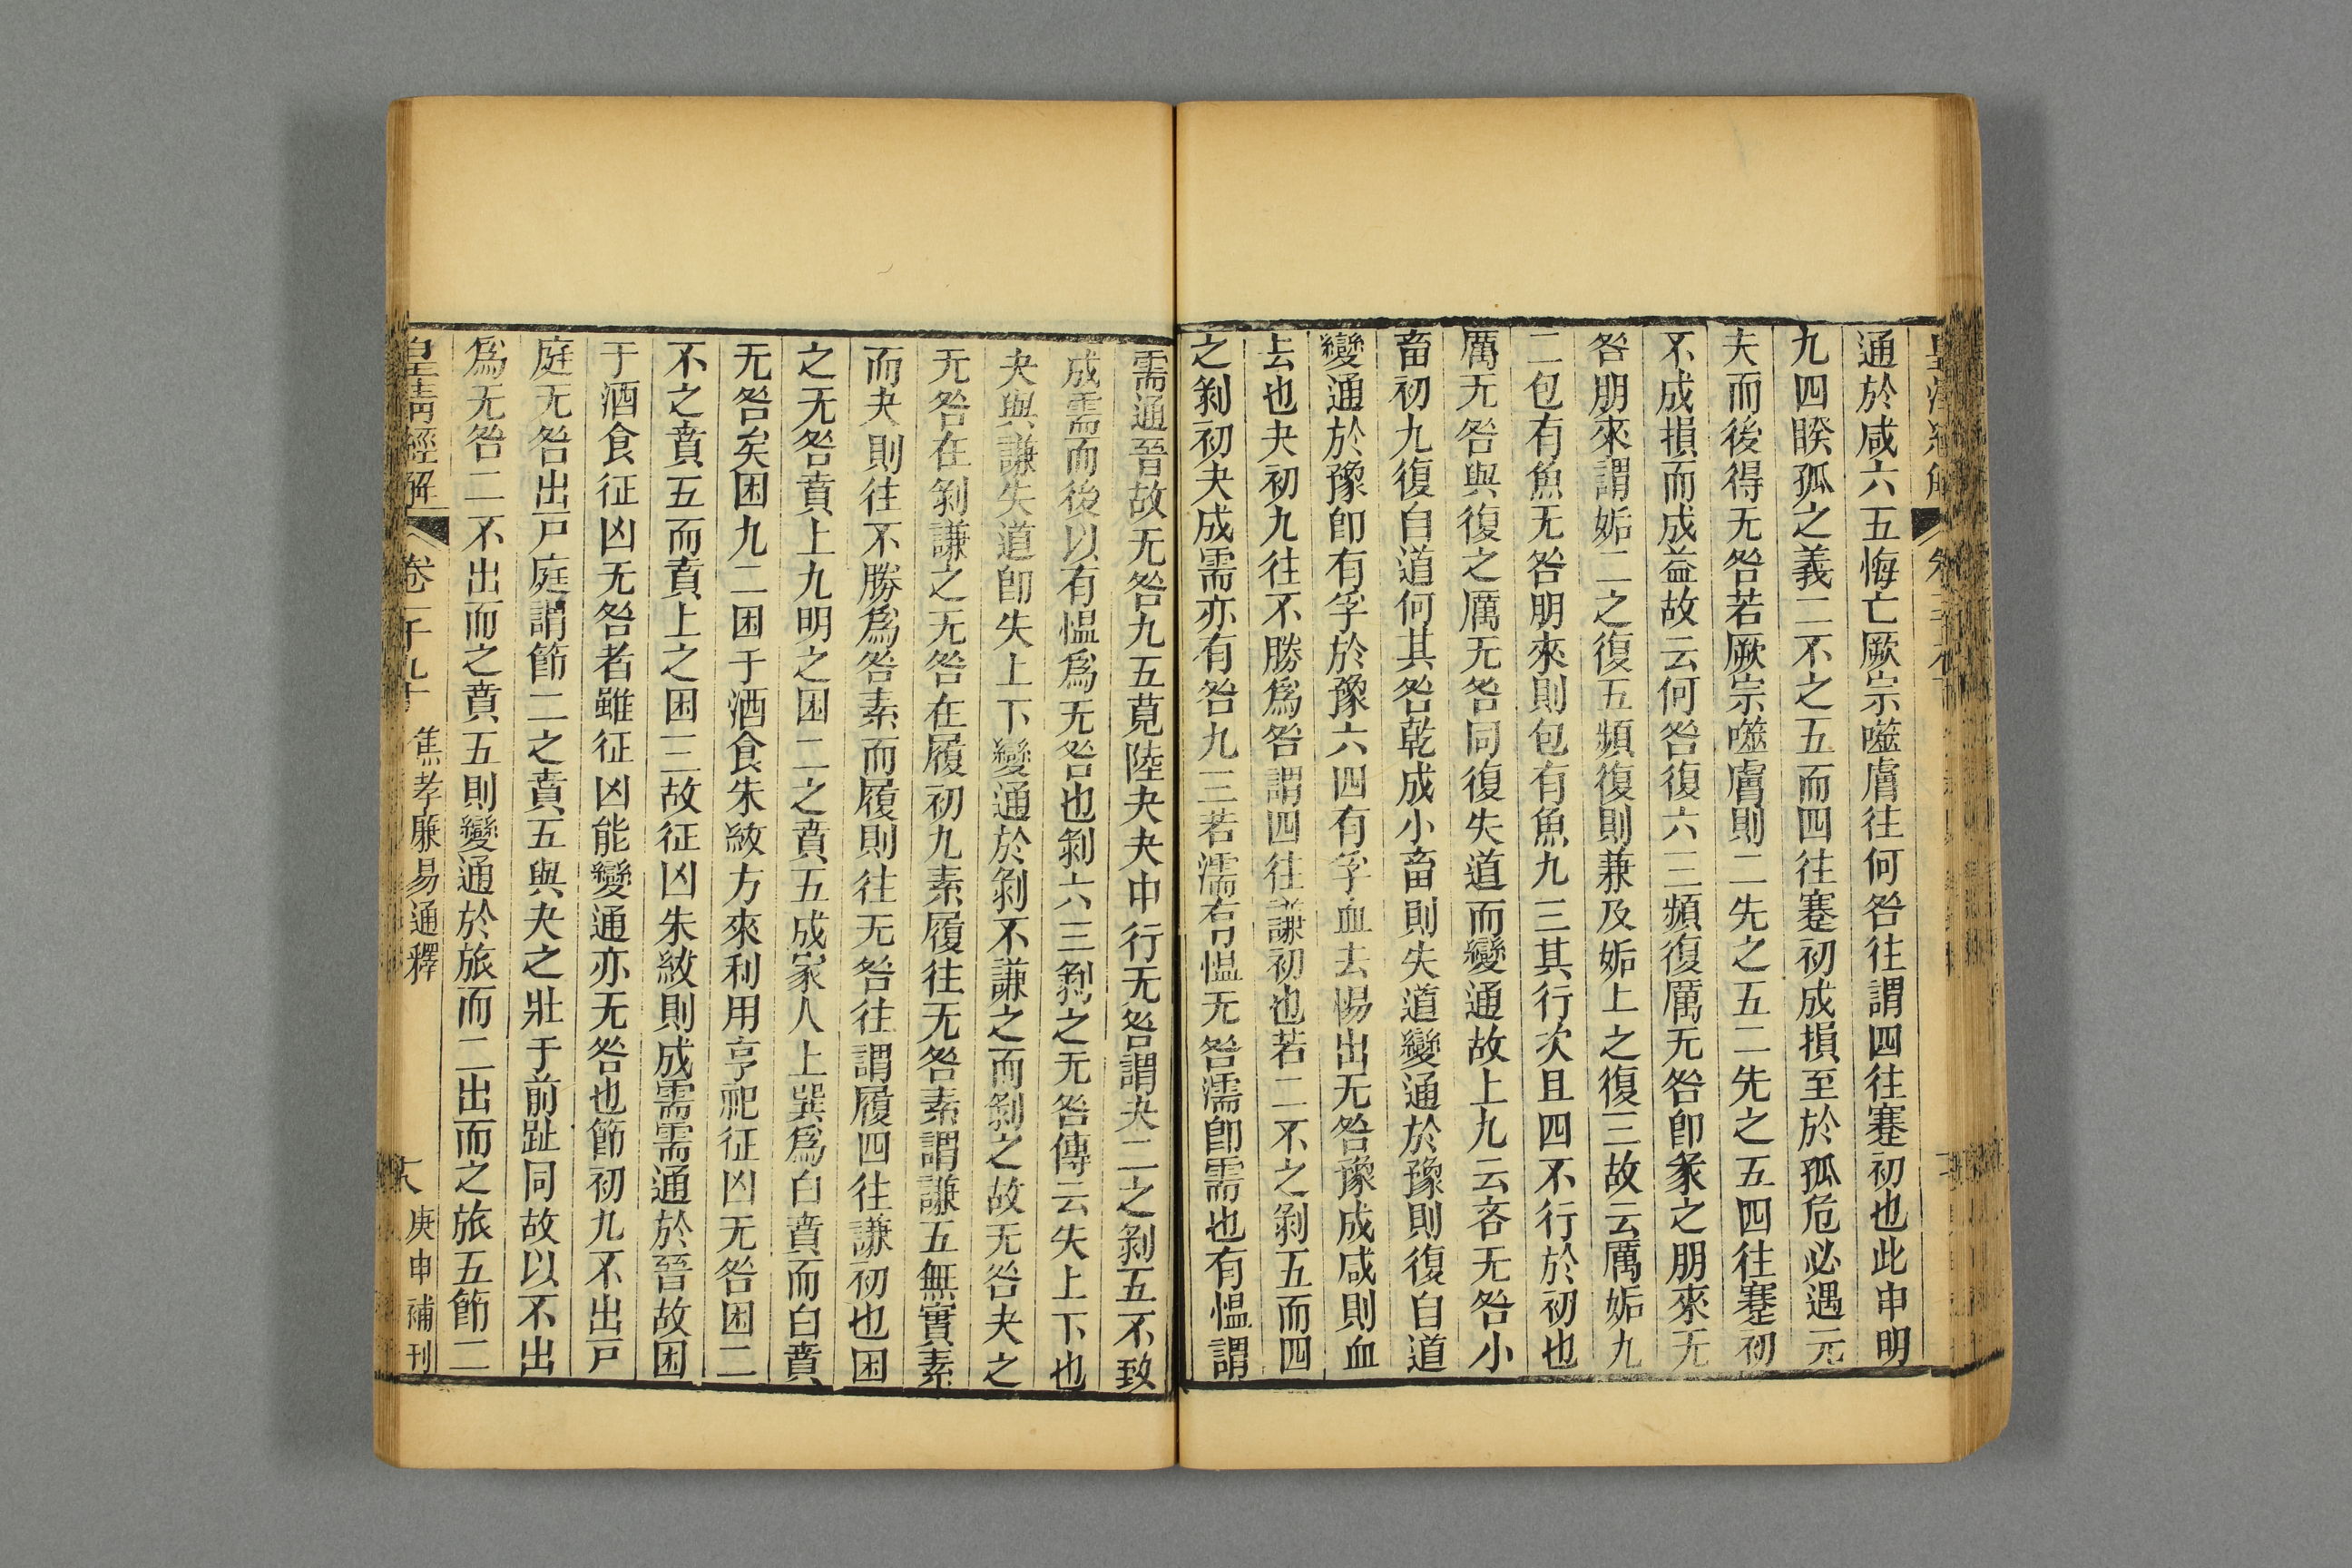 通於咸六五悔亡厥宗噬膚往何咎往謂四往蹇初也此申明
九四睽孤之義二不之五而四往蹇初成損至於孤危必遇元
夫而後得无咎若厥宗噬膚則二先之五二先之五四往蹇初
不成損而成益故云何咎復六三頻復厲无咎卽彖之朋來无
咎朋來謂姤二之復五頻復則兼及姤上之復三故云厲姤九
二包有魚无咎朋來則包有魚九三其行次且四不行於初也
厲无咎與復之厲无咎同復失道而變通故上九云吝无咎小
畜初九復自道何其咎乾成小畜則失道變通於豫則復自道
變通於豫卽有孚於豫六四有孚血去惕出无咎豫成咸則血
去也夬初九往不勝爲咎謂四往謙初也若二不之剝五而四
之剝初夬成需亦有咎九三若濡有愠无咎濡卽需也有愠謂
需通晉故无咎九五莧陸夬夬中行无咎謂夬二之剝五不致
成需而後以有愠爲无咎也剝六三剝之无咎傳云失上下也
夬與謙失道卽失上下變通於剝不謙之而剝之故无咎夬之
无咎在剝謙之无咎在履初九素履往无咎素謂謙五無實素
而夬則往不勝爲咎素而履則往无咎往謂履四往謙初也困
之无咎賁上九明之困二之賁五成家人上巽爲白賁而白賁
无咎矣困九二困于酒食朱紱方來利用亨祀征凶无咎困二
不之賁五而賁上之困三故征凶朱紱則成需需通於晉故困
于酒食征凶无咎者雖征凶能變通亦无咎也節初九不出戸
庭无咎出戸庭謂節二之賁五與夬之壯于前趾同故以不出
爲无咎二不出而之賁五則變通於旅而二出而之旅五節二
皇清經解 卷一千九十 焦孝廉易通釋 大 庚申補刊